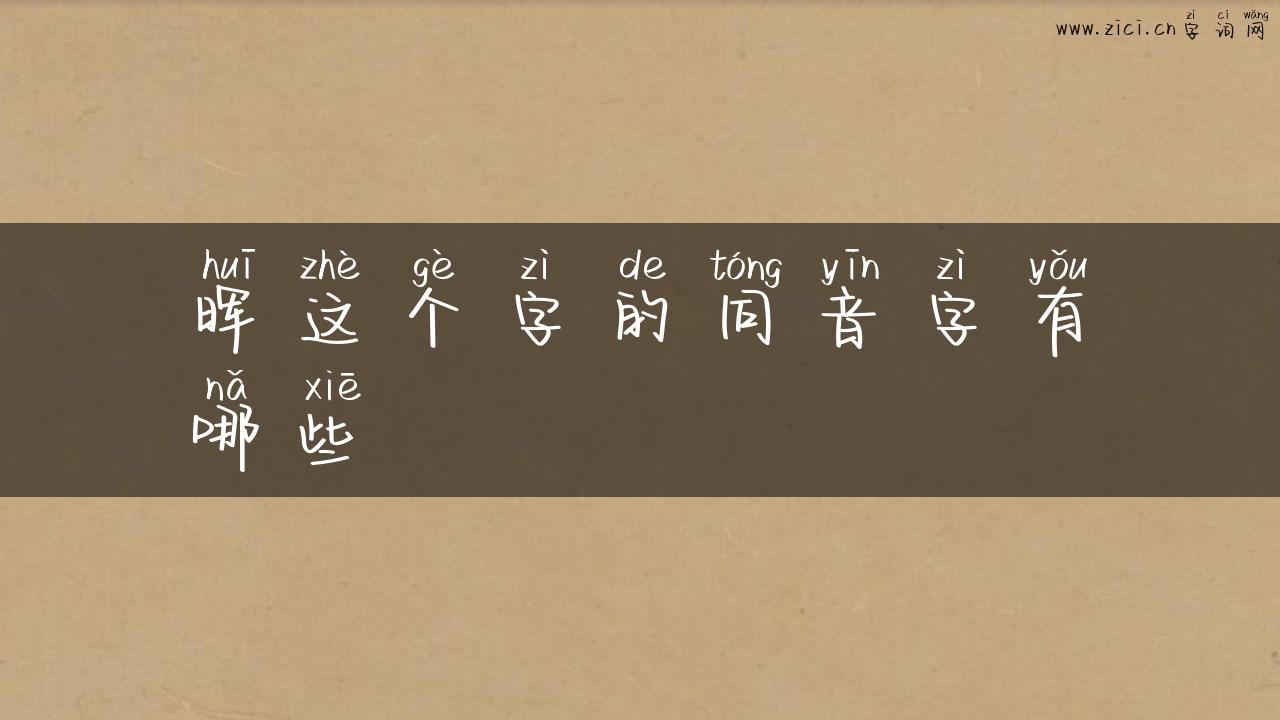 www.zici.cn 字词网
zì cí wǎng
huī zhè gè zì de tóng yīn zì yǒu
晖这个字的同音字有
nǎ xiē
哪些